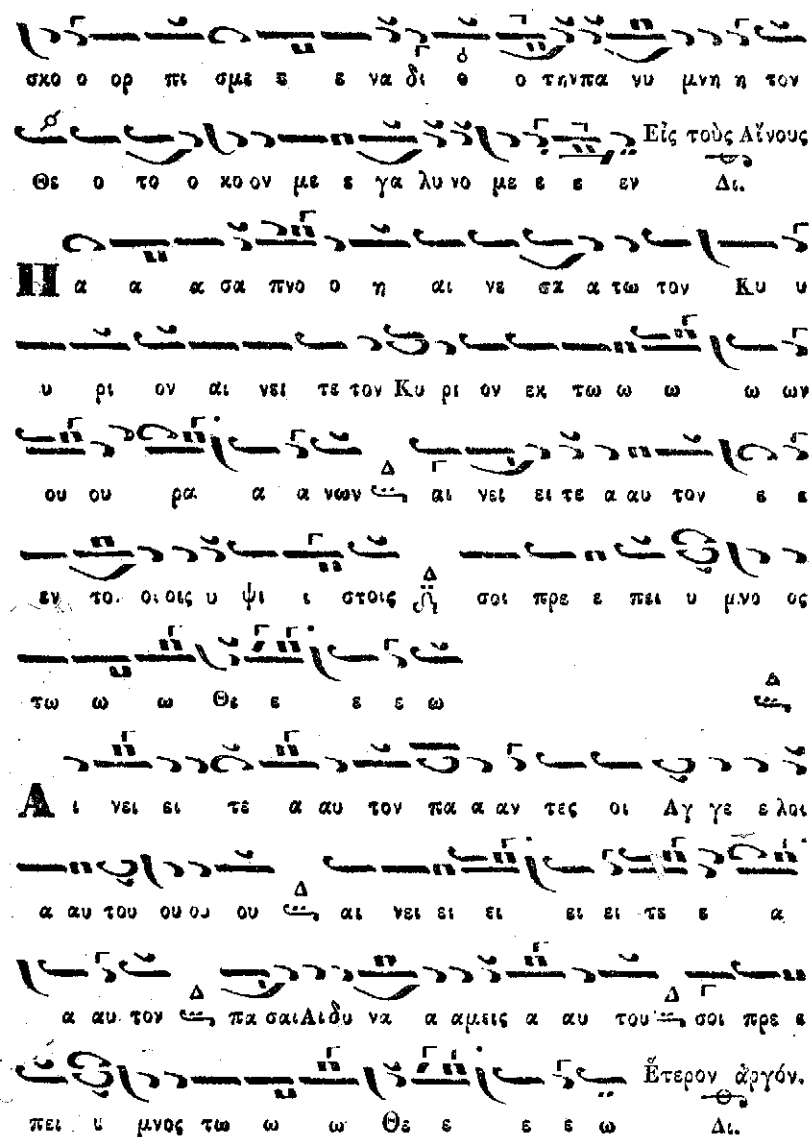 σκο ο ορ πι σμε ε ε να δι θ ο την πα νυ μνη η τον
Θε ο το ο κο ον με ε γα λυ νο με ε ε εν Εἰς τοὺς Αἴνους Δι.
Π α α α σα πνο ο η αι νε σα α τω τον Κυ υ
υ ρι ον αι νει τε τον Κυ ρι ον εκ τω ω ω ω ων
ου ου ρα α α νων Δ αι νει ει τε α αυ τον ε ε
εν το οι οις υ ψι ι στοις Δ σοι πρε ε πει υ μνο ος
τω ω ω Θε ε ε ε ω Δ
Α ι νει ει τε α αυ τον πα α αν τες οι Αγ γε ε λοι
α αυ του ου ου ου Δ αι νει ει ει ει ει τε ε α
α αυ τον Δ πα σαι Αι δυ να α αμεις α αυ του Δ σοι πρε ε
πει υ μνος τω ω ω Θε ε ε ε ω Ἕτερον ἀργόν. Δι.